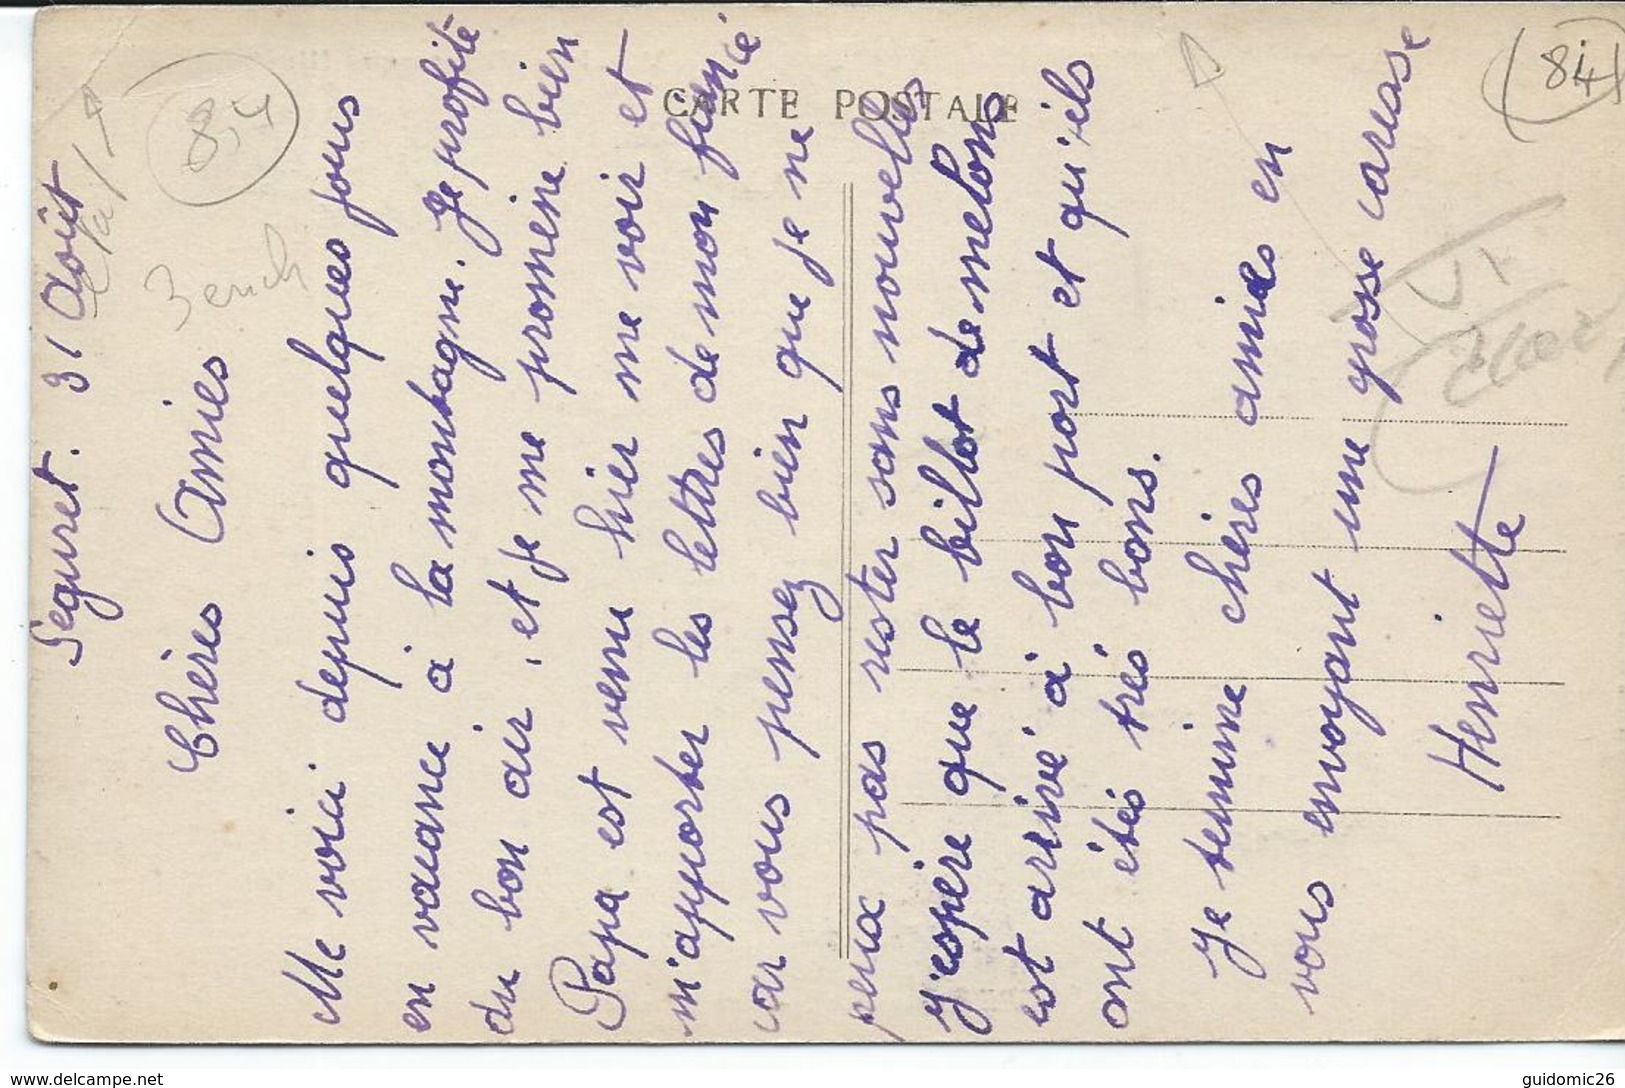 Séguret. 31 Août
Chères Amies
Me voici depuis quelques jours
en vacance à la montagne. Je profite
du bon air, et je me promène bien
Papa est venu hier me voir et
m'apporter les lettres de mon fiancé
car vous pensez bien que je ne
peux pas rester sans nouvelles
J'espère que le billot de melons
est arrivé à bon port et qu'ils
ont étés très bons.
Je termine chères amies en
vous envoyant une grosse caresse
Henriette
CARTE POSTALE
84
84
www.delcampe.net
guidomic26